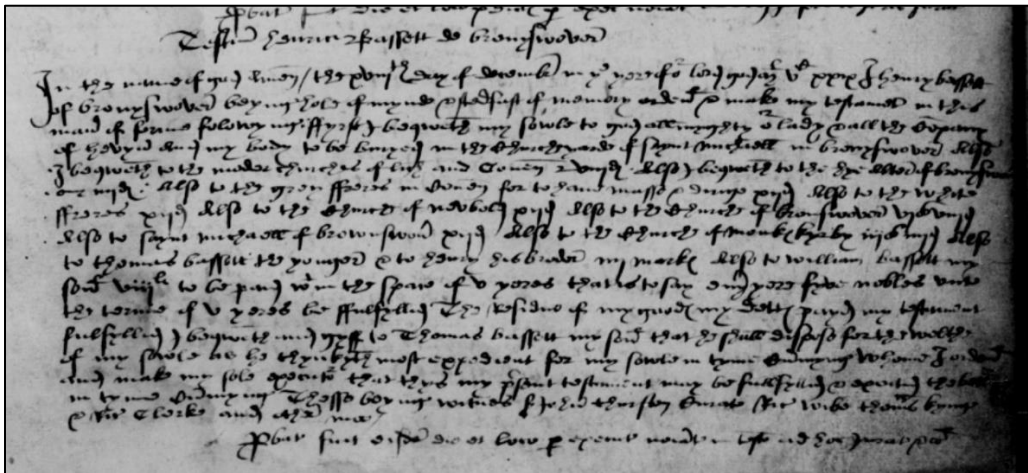 Testm henrici Bassett de bromswover
In the name of god Amen / the xviijth day of decembr in ye yere of or lord god m vc xxix I henry bassett
of bromyswover beyng hole of mynde & stedfast of memory orden & make my testament in this
maner of forme folowyng ffyrst I beqweth my sowle to god allmyghty or lady & all the company
of hevyn And my body to be buryed in the churcheyarde of saynt michaell in bromyswover Also
I beqweth to the moder churches of lich and Coven viijd Also I beqweth to the hye Alter of
iiijd Also to the grey ffreres in Coven for to have masse & dirige xijd Also to the white
ffreres xijd Also to the Church of newbold xijd Also to the Church of bromswover vjs viijd
Also to saynt michaell of brownswover xijd Also to the Church of monks kyrby iijs iiijd Also
to thomas bassett the yonger & to henry his broder iiij marks Also to william bassett my
son viijl to be payd wtin the space of v yeres that is to say every yere fyve nobles unto
the terme of v yeres be ffulfylled The Residue of my goods my detts payed my testament
fulfylled I beqweth and gyff to Thomas bassett my son that he shall dispose for the welthe
of my sowle as he thynkyth most expedient for my sowle in tyme Cumyng whome I orden
and make my sole executor that thys my present testament may be fulfylled &
in tyme Cumyng Thesse beyng witnes John thurston Curate Ric thoms kynge
& Ric Clerke and other moo
Probat fuit eisdem die et loco p